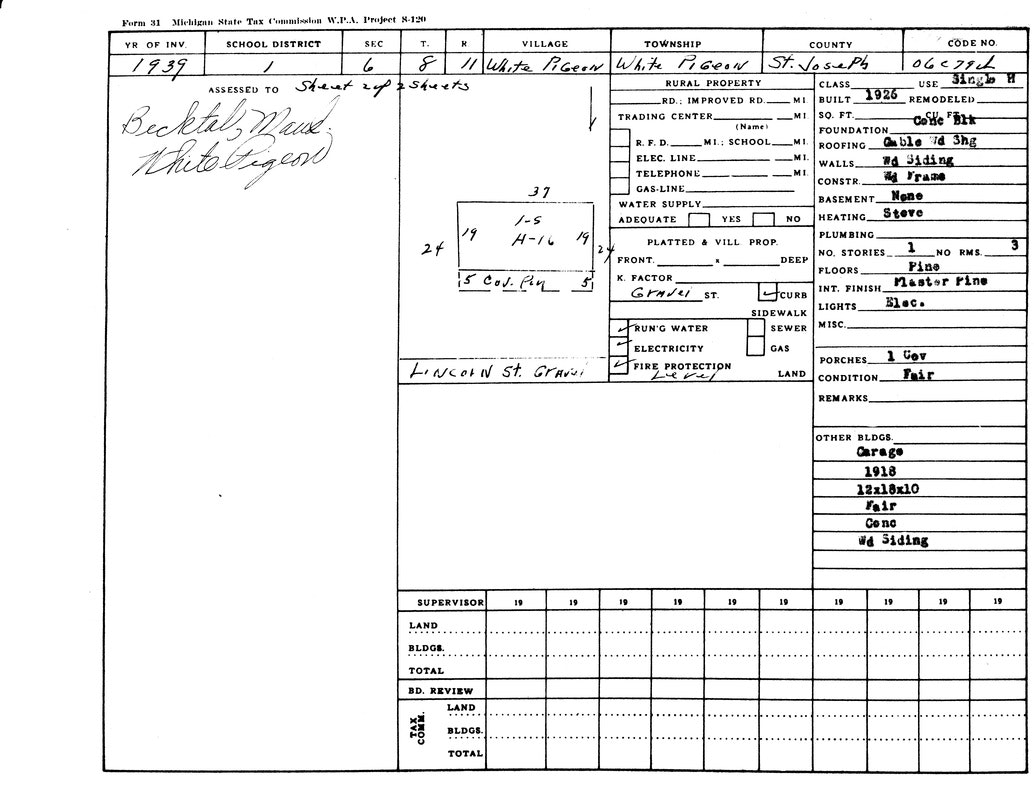 Form 31 Michigan State Tax Commission W.P.A. Project S-120
YR OF INV. SCHOOL DISTRICT SEC T. R VILLAGE TOWNSHIP COUNTY CODE NO.
1939 1 6 8 11 White Pigeon White Pigeon St. Joseph
ASSESSED TO Sheet 2 of 2 Sheets
Becktal, Maud.
White Pigeon
37
24 19 1-S 19 24
H-16
5 Cov. Pch 5
Lincoln St. Gravel
RURAL PROPERTY
RD.; IMPROVED RD. MI.
TRADING CENTER MI.
(Name)
R. F. D. MI.; SCHOOL MI.
ELEC. LINE MI.
TELEPHONE MI.
GAS-LINE
WATER SUPPLY
ADEQUATE YES NO
PLATTED & VILL PROP.
FRONT. x DEEP
K. FACTOR
Gravel ST. CURB
SIDEWALK
RUN'G WATER SEWER
ELECTRICITY GAS
FIRE PROTECTION
Level LAND
CLASS USE Single H
BUILT 1926 REMODELED
SQ. FT. CU FT.
FOUNDATION Conc Blk
ROOFING Gable Wd Shg
WALLS Wd Siding
CONSTR. Wd Frame
BASEMENT None
HEATING Stove
PLUMBING
NO. STORIES 1 NO RMS. 3
FLOORS Pine
INT. FINISH Plaster Pine
LIGHTS Elec.
MISC.
PORCHES 1 Cov
CONDITION Fair
REMARKS
OTHER BLDGS.
Garage
1918
12x18x10
Fair
Conc
Wd Siding
SUPERVISOR 19 19 19 19 19 19 19 19 19 19
LAND
BLDGS.
TOTAL
BD. REVIEW
TAX COMM.
LAND
BLDGS.
TOTAL